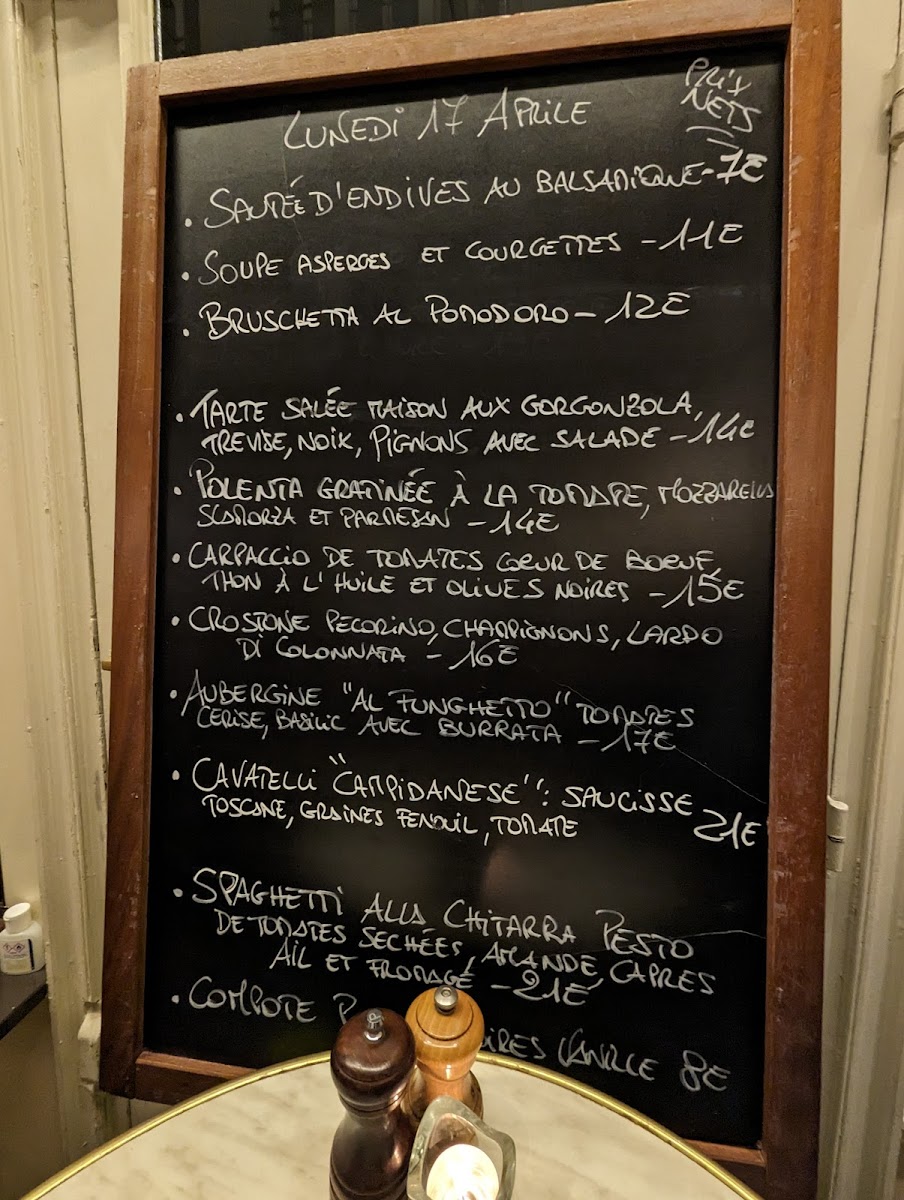 PRIX
NETS
LUNEDI 17 APRILE
• SAUTÉE D'ENDIVES AU BALSAMIQUE - 7E
• SOUPE ASPERGES ET COURGETTES - 11E
• BRUSCHETTA AL POMODORO - 12E
• TARTE SALÉE MAISON AUX GORGONZOLA,
TREVISE, NOIX, PIGNONS AVEC SALADE - 14E
• POLENTA GRATINÉE À LA TOMATE, MOZZARELLA
SCAMORZA ET PARMESAN - 14E
• CARPACCIO DE TOMATES COEUR DE BOEUF,
THON À L'HUILE ET OLIVES NOIRES - 15E
• CROSTONE PECORINO, CHAMPIGNONS, LARDO
DI COLONNATA - 16E
• AUBERGINE "AL FUNGHETTO" TOMATES
CERISE, BASILIC AVEC BURRATA - 17E
• CAVATELLI "CAMPIDANESE": SAUCISSE
TOSCANE, GRAINES FENOUIL, TOMATE 21E
• SPAGHETTI ALLA CHITARRA PESTO
DE TOMATES SECHÉES, AMANDE, CAPRES
AIL ET FROMAGE - 21E
• COMPOTE P IRES VANILLE 8E